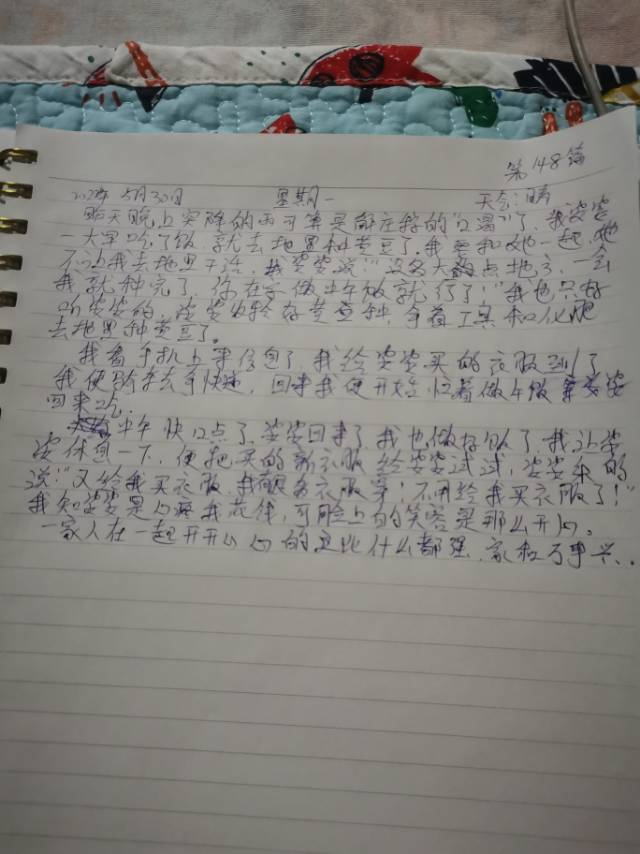 第148篇
2022年5月30日 星期一 天气:晴
昨天晚上突降的雨可算是解庄稼的“口渴”了,我婆婆
一大早吃了饭,就去地里种黄豆了,我要和她一起,她
不让我去地里干活,我婆婆说:“没多大点地方,一会
我就种完了,你在家做中午饭就行了!”我也只好
听婆婆的,婆婆收拾好黄豆种,拿着工具和化肥
去地里种黄豆了。
我看手机上来信息了,我给婆婆买的衣服到了
我便骑车去拿快递,回来我便开始忙着做午饭等婆婆
回来吃。
中午快12点了,婆婆回来了,我也做好饭了,我让婆
婆休息一下,便把买的新衣服给婆婆试试,婆婆
说:“又给我买衣服,我有衣服穿!不用给我买衣服了!”
我知道婆婆是心疼我花钱,可脸上的笑容是那么开心。
一家人在一起开开心心的比什么都强,家和万事兴..